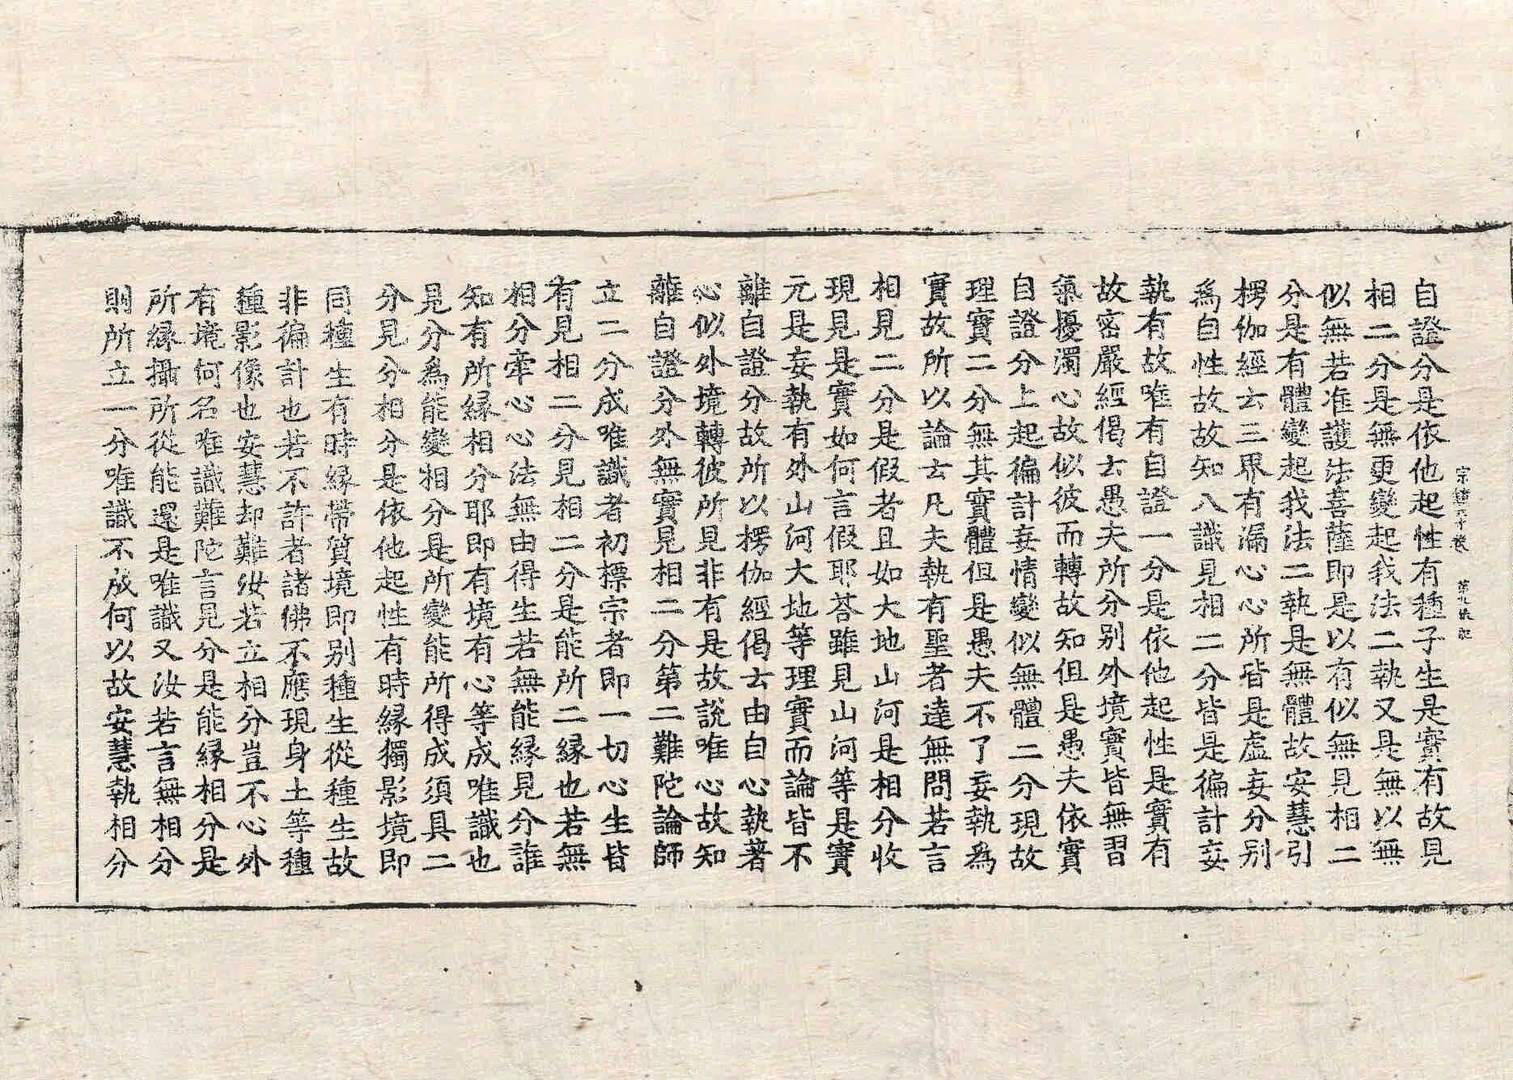 自證分是依他起性有種子生是實有故見
相二分是無更變起我法二執又是無以無
似無若准護法菩薩即是以有似無見相二
分是有體變起我法二執是無體故安慧引
楞伽經云三界有漏心心所皆是虛妄分別
爲自性故故知八識見相二分皆是徧計妄
執有故唯有自證一分是依他起性是實有
故密嚴經偈云愚夫所分別外境實皆無習
氣擾濁心故似彼而轉故知但是愚夫依實
自證分上起徧計妄情變似無體二分現故
理實二分無其實體但是愚夫不了妄執爲
實故所以論云凡夫執有聖者達無問若言
相見二分是假者且如大地山河是相分收
現見是實如何言假耶荅雖見山河等是實
元是妄執有外山河大地等理實而論皆不
離自證分故所以楞伽經偈云由自心執著
心似外境轉彼所見非有是故說唯心故知
離自證分外無實見相二分第二難陀論師
立二分成唯識者初標宗者即一切心生皆
有見相二分見相二分是能所二緣也若無
相分牽心心法無由得生若無能緣見分誰
知有所緣相分耶即有境有心等成唯識也
見分爲能變相分是所變能所得成須具二
分見分相分是依他起性有時緣獨影境即
同種生有時緣帶質境即別種生從種生故
非徧計也若不許者諸佛不應現身土等種
種影像也安慧却難汝若立相分豈不心外
有境何名唯識難陀言見分是能緣相分是
所緣攝所從能還是唯識又汝若言無相分
則所立一分唯識不成何以故安慧執相分